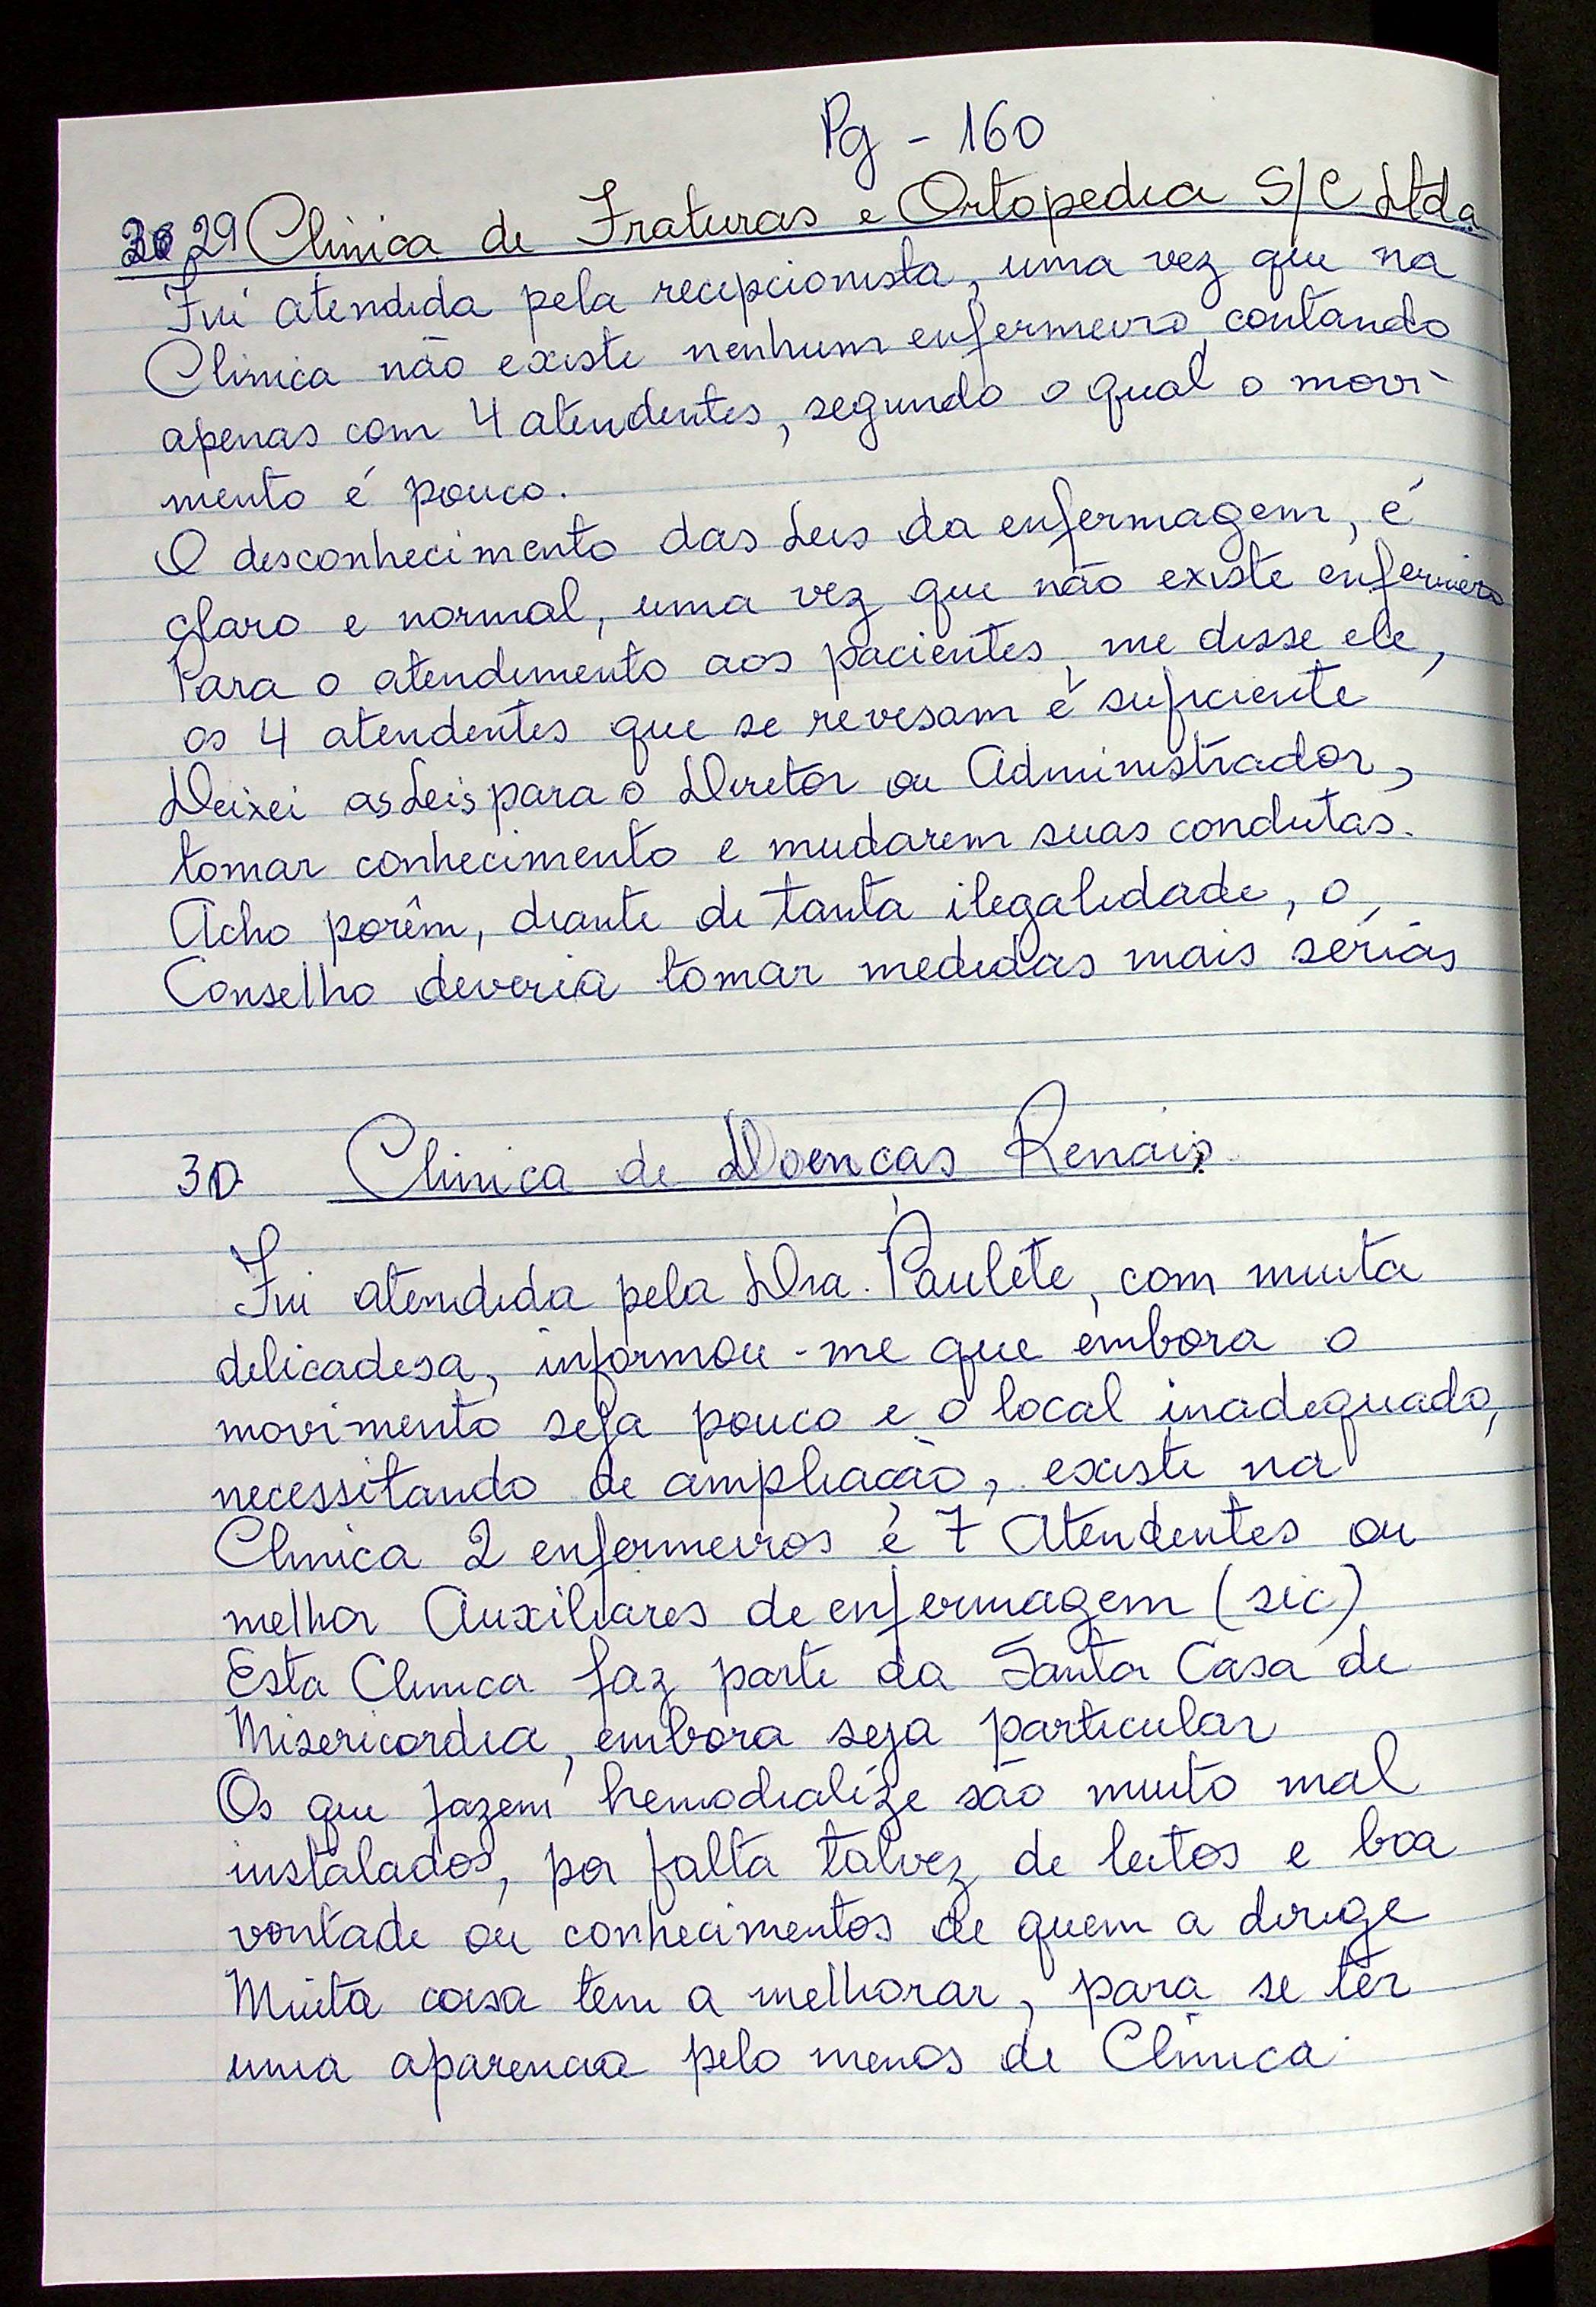 Pg - 160
29 Clinica de Fraturas e Ortopedia S/C Ltda
Fui atendida pela recepcionista, uma vez que na
Clinica não existe nenhum enfermeiro, contando
apenas com 4 atendentes, segundo o qual o movi-
mento é pouco.
O desconhecimento das Leis da enfermagem, é
claro e normal, uma vez que não existe enfermeiro
Para o atendimento aos pacientes, me disse ele,
os 4 atendentes que se revesam é suficiente
Deixei as Leis para o Diretor ou Administrador,
tomar conhecimento e mudarem suas condutas.
Acho porêm, diante de tanta ilegalidade, o
Conselho deveria tomar medidas mais sérias
30 Clinica de Doenças Renais
Fui atendida pela Dra. Paulete, com muita
delicadesa, informou-me que embora o
movimento seja pouco e o local inadequado,
necessitando de ampliação, existe na
Clinica 2 enfermeiros e 7 Atendentes ou
melhor Auxiliares de enfermagem (sic)
Esta Clinica faz parte da Santa Casa de
Misericordia, embora seja particular
Os que fazem hemodialíze são muito mal
instalados, por falta talvez de leitos e boa
vontade ou conhecimentos de quem a dirige
Muita coisa tem a melhorar, para se ter
uma aparencia pelo menos de Clinica.